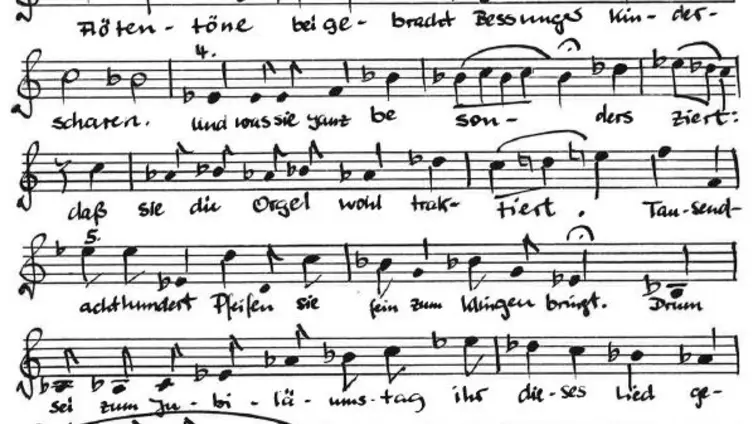 Flöten- töne beige- bracht Bessunger Kin- der-
4.
scharen. und was sie ganz be son- ders ziert:
daß sie die Orgel wohl trak- tiert. Tau-send-
5.
achthundert Pfeifen sie fein zum klingen bringt. Drum
sei zum Ju- bi- lä- ums-tag ihr die-ses Lied ge-